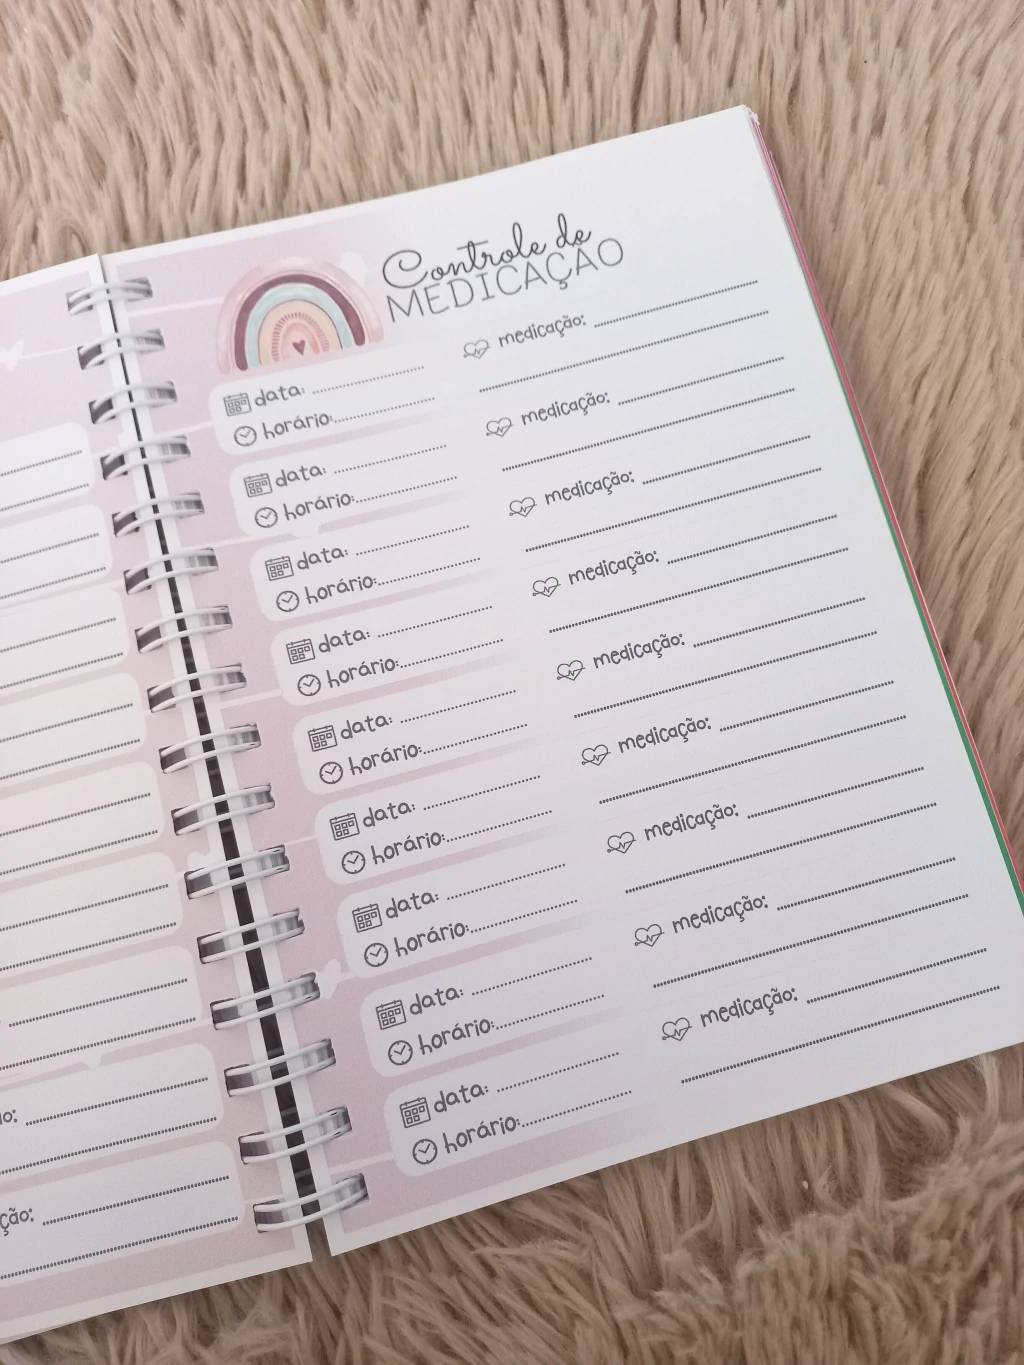 o:
ção:
Controle de
MEDICAÇÃO
data: medicação:
horário:
data: medicação:
horário:
data: medicação:
horário:
data: medicação:
horário:
data: medicação:
horário:
data: medicação:
horário:
data: medicação:
horário:
data: medicação:
horário:
data: medicação:
horário: